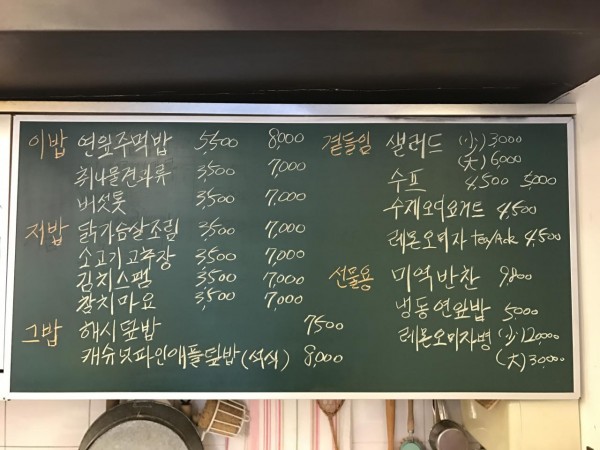 이밥 연잎주먹밥 5,500 8,000
취나물견과류 3,500 7,000
버섯톳 3,500 7,000
저밥 닭가슴살조림 3,500 7,000
소고기고추장 3,500 7,000
김치스팸 3,500 7,000
참치마요 3,500 7,000
그밥 해시덮밥 7500
캐슈넛파인애플덮밥(석식) 8,000
곁들임 샐러드 (小) 3000
(大) 6,000
수프 4,500 5,000
수제오디요거트 4,500
레몬오미자 tea/Ade 4,500
선물용 미역반찬 9,800
냉동연잎밥 5,000
레몬오미자병 (小) 12000
(大) 30,000